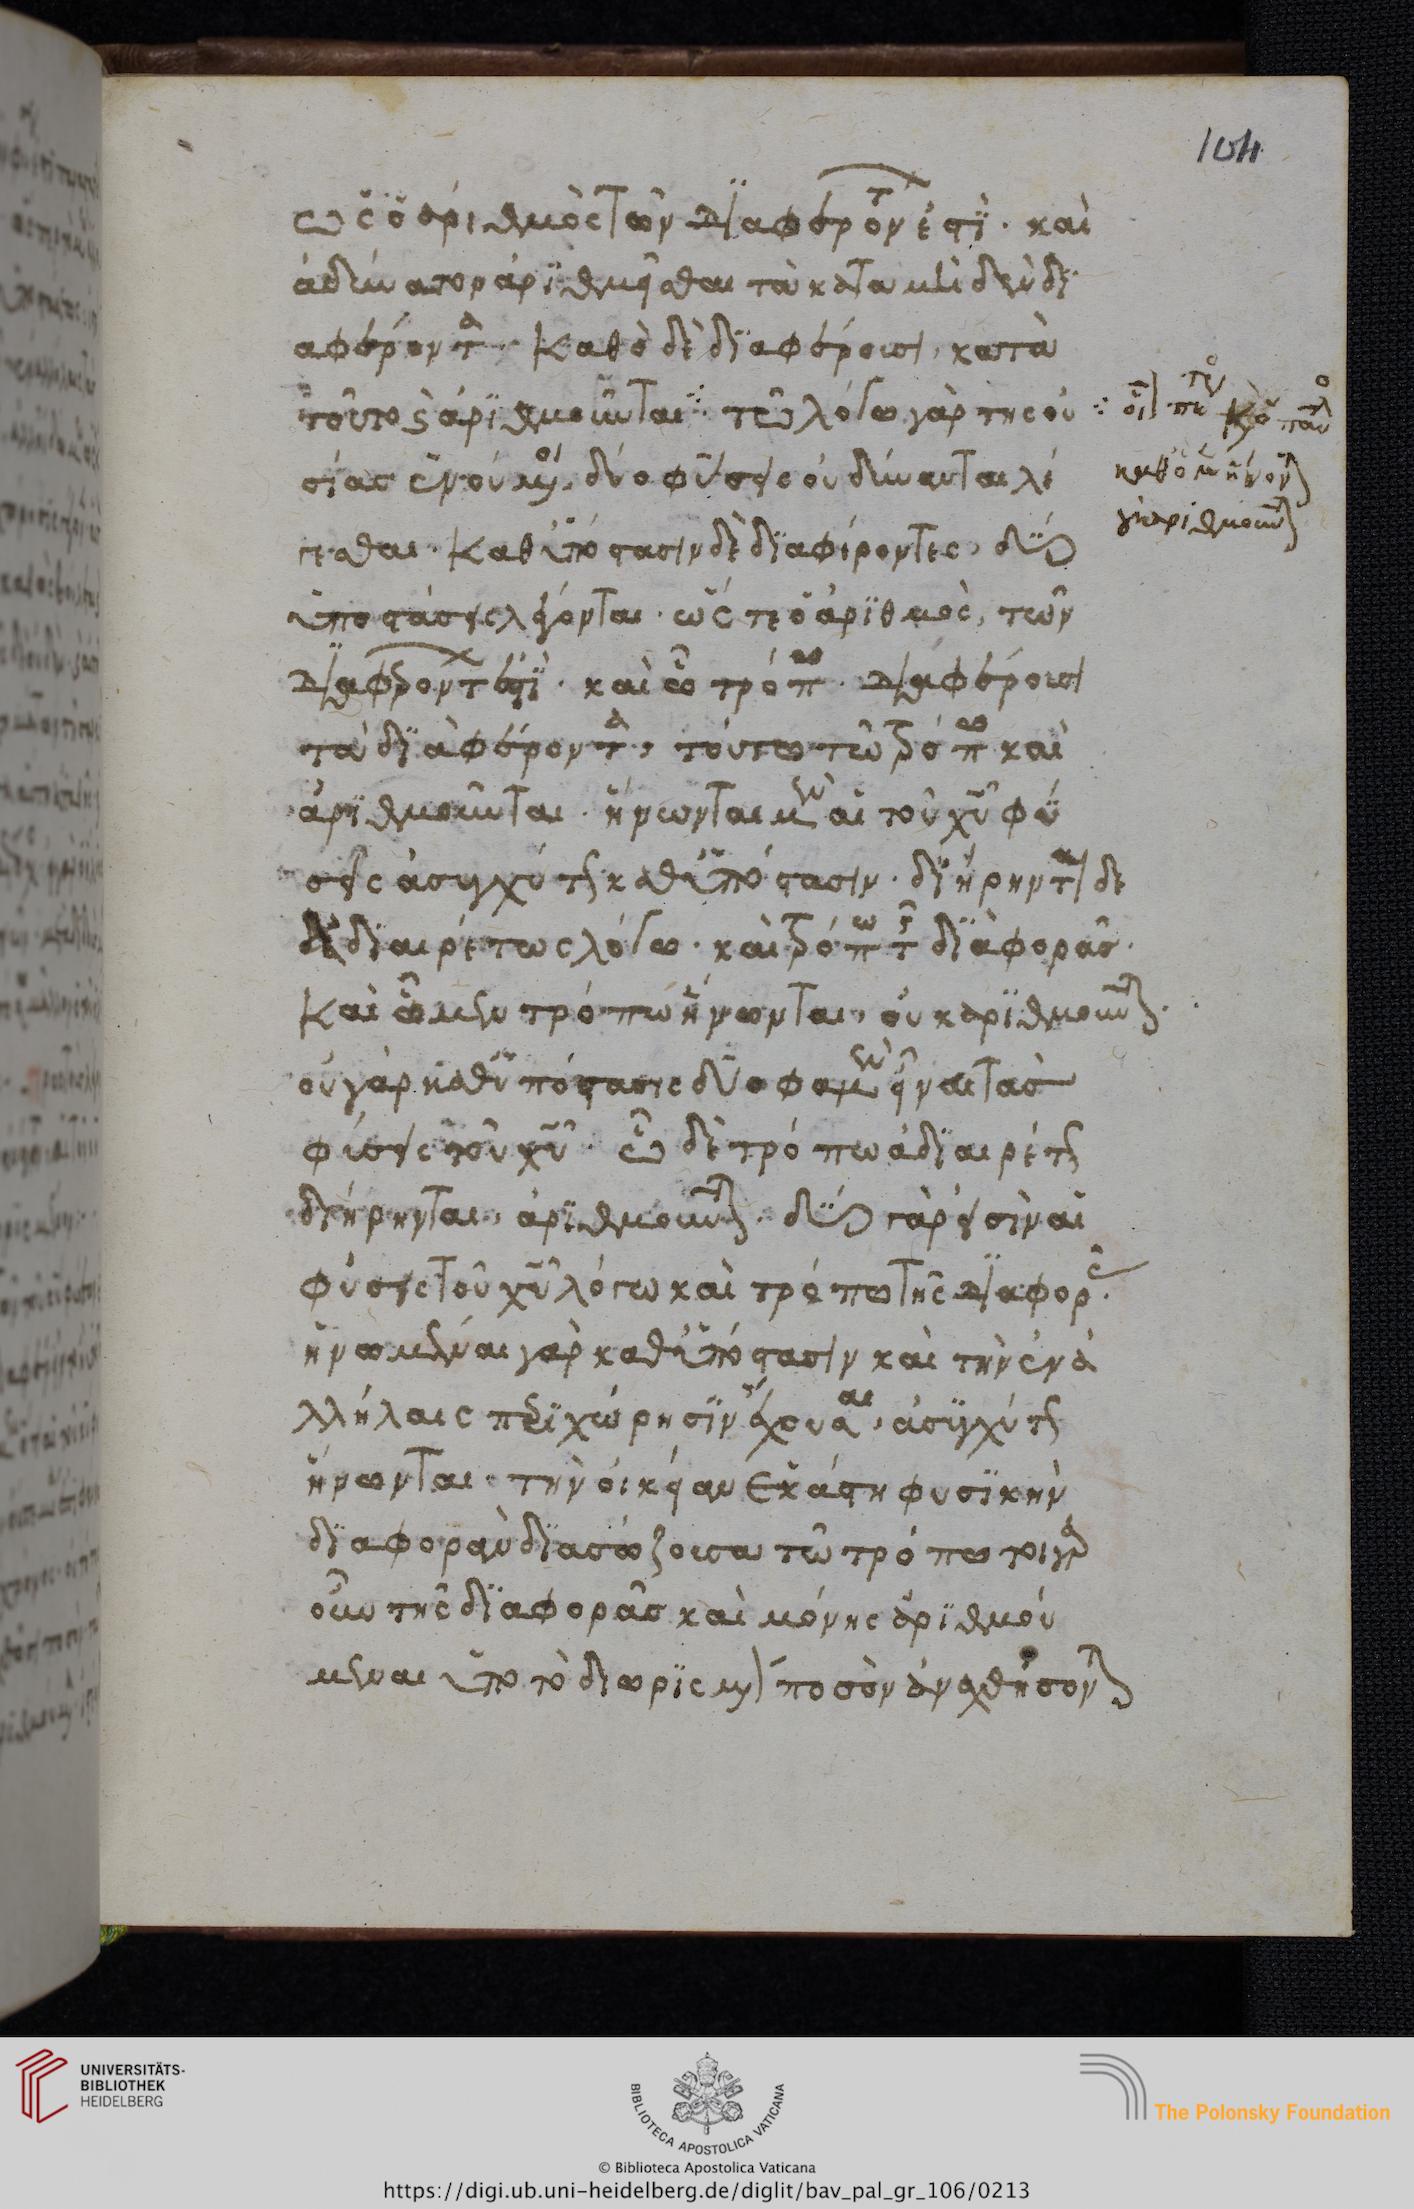 104
ὡς ὁ ἀριθμὸς τῶν διαφερόντων ἐστί· καὶ
ἀδύνατον ἀριθμεῖσθαι τὰ κατὰ μηδὲν δι
αφέροντα· καθὸ δὲ διαφέρουσι, κατὰ
τοῦτο καὶ ἀριθμοῦνται· τῷ λόγω γὰρ τῆς οὐ
σίας ἑνούμεναι, δύο φύσεις οὐ δύνανται λέ
γεσθαι· καθ ὑπόστασιν δὲ διαφέροντες, δύο
ὑποστάσεις λέγονται· ὥστε ὁ ἀριθμὸς, τῶν
διαφερόντων ἐστί· καὶ ὧ τρόπω διαφέρουσι
τὰ διαφέροντα, τούτω τῶ τρόπω καὶ
ἀριθμοῦνται· ἥνωνται μὲν αἱ τοῦ χυ φύ
σεις ἀσυγχύτως καθ ὑπόστασιν· διήρηνται δὲ
ἀδιαιρέτως λόγω· καὶ τρόπω τῆς διαφορᾶς·
καὶ ὧ μὲν τρόπω ἥνωνται, οὐκ ἀριθμοῦνται·
οὐ γὰρ καθ ὑπόστασις δύο φαμὲν εἶναι τὰς
φύσεις τοῦ χυ· ὧ δὲ τρόπω ἀδιαιρέτως
διήρηνται, ἀριθμοῦνται· δύο γάρ εἰσὶν αἱ
φύσεις τοῦ χυ λόγω καὶ τρόπω τῆς διαφορᾶς·
ἡνωμέναι γὰρ καθ ὑπόστασιν καὶ τὴν ἐν ἀ
λλήλαις περιχώρησιν ἔχουσαι, ἀσυγχύτως
ἥνωνται· τὴν οἰκείαν ἑκάστη φυσικὴν
διαφορὰν διασώζουσα τῶ τρόπω τοιγαρ
οῦν τῆς διαφορᾶς καὶ μόνης ἀριθμού
μεναι ὑπὸ τὸ διωρισμένον ποσὸν ἀναχθήσονται
καθὸ μὲν ἥνωνται
οὐκ ἀριθμοῦνται
UNIVERSITÄTS-
BIBLIOTHEK
HEIDELBERG
BIBLIOTECA APOSTOLICA VATICANA
The Polonsky Foundation
© Biblioteca Apostolica Vaticana
https://digi.ub.uni-heidelberg.de/diglit/bav_pal_gr_106/0213